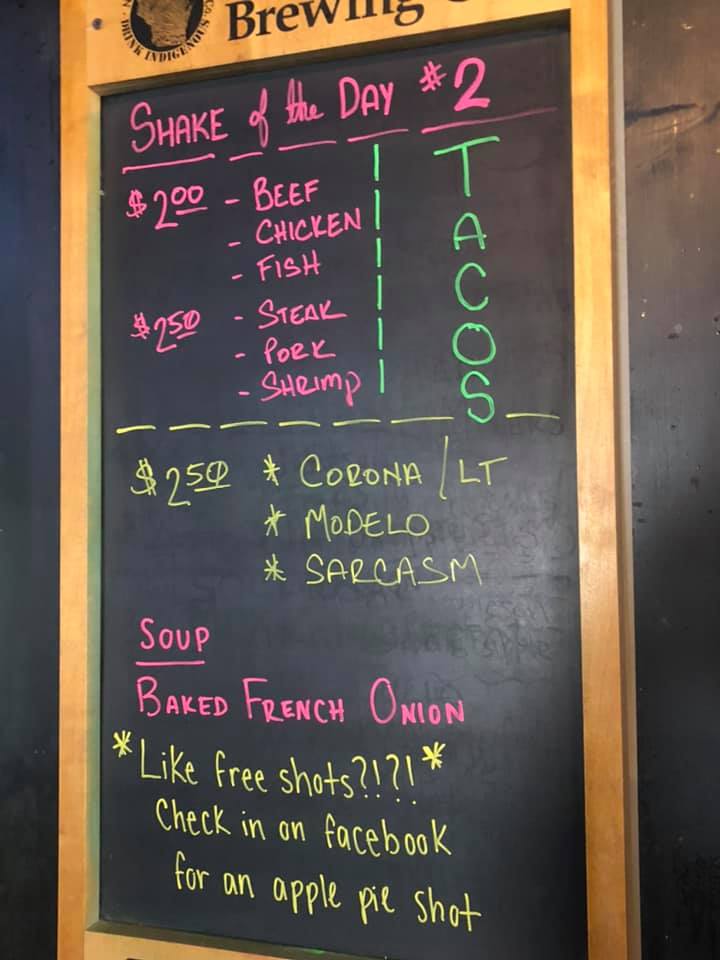 DRINK INDIGENOUS
Brewing
SHAKE of the DAY #2
$2.00 - BEEF
- CHICKEN
- FISH
$2.50 - STEAK
- PORK
- SHRIMP
TACOS
$2.50 * CORONA / LT
* MODELO
* SARCASM
SOUP
BAKED FRENCH ONION
*Like free shots?!?!*
Check in on facebook
for an apple pie shot